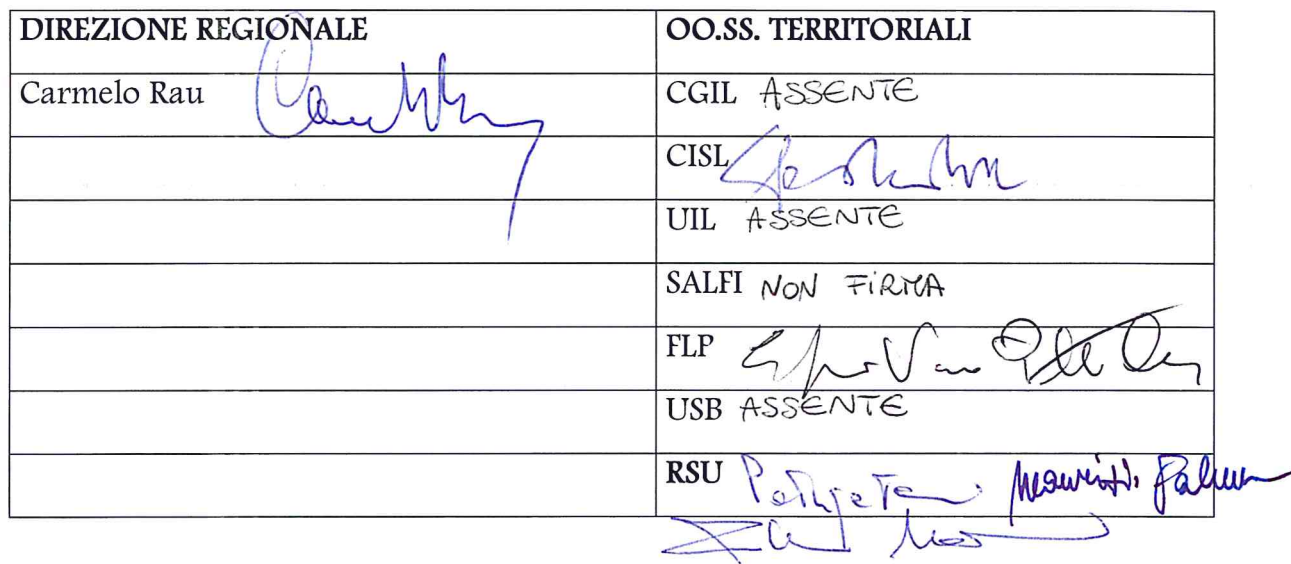 DIREZIONE REGIONALE OO.SS. TERRITORIALI
Carmelo Rau CGIL ASSENTE
CISL
UIL ASSENTE
SALFI NON FIRMA
FLP
USB ASSENTE
RSU